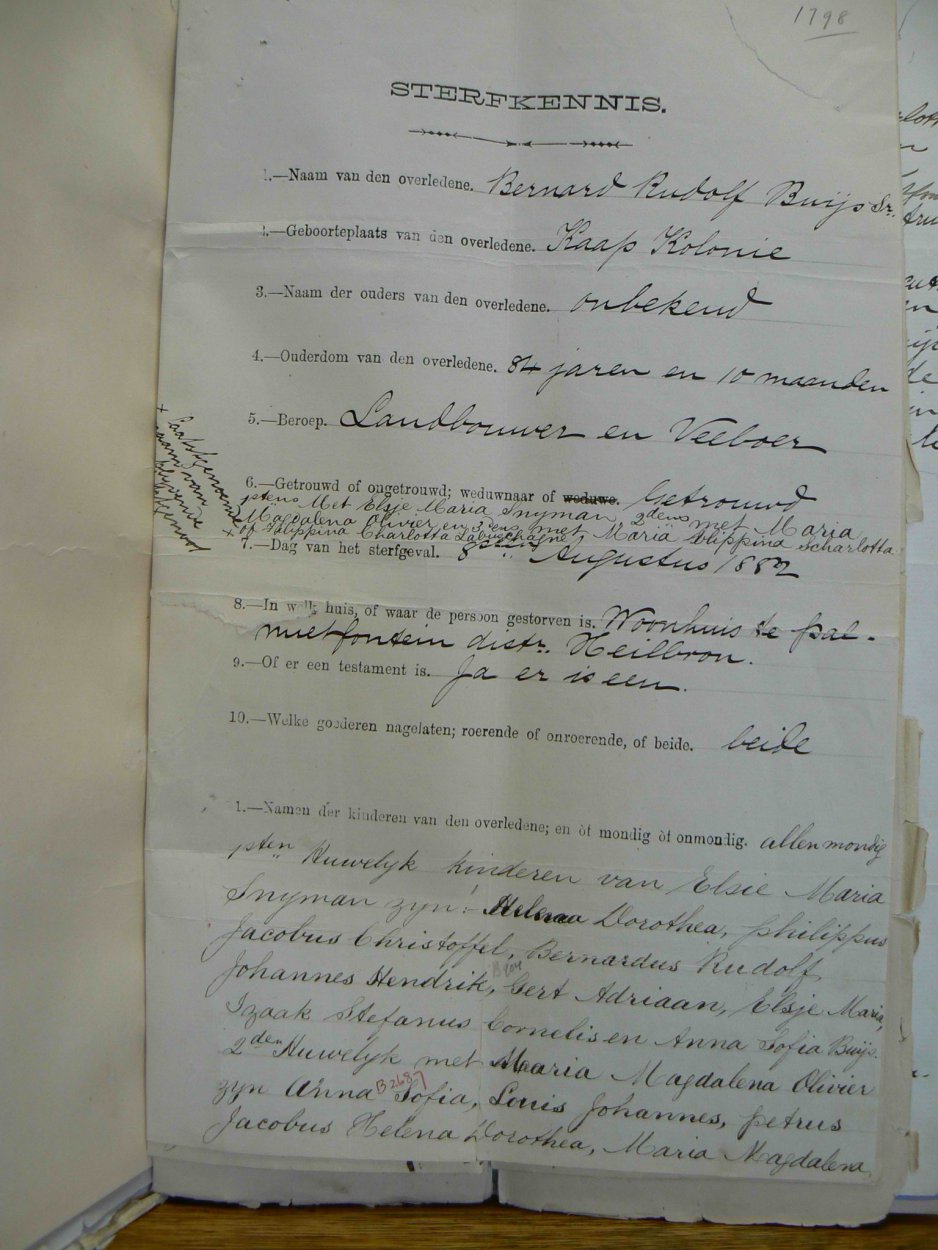 1798
STERFKENNIS.
1.—Naam van den overledene. Bernard Rudolf Buijs Sr.
2.—Geboorteplaats van den overledene. Kaap Kolonie
3.—Naam der ouders van den overledene. onbekend
4.—Ouderdom van den overledene. 84 jaren en 10 maanden
5.—Beroep. Landbouwer en Veeboer
6.—Getrouwd of ongetrouwd; weduwnaar of weduwe. Getrouwd
1stens Met Elsje Maria Snyman, 2dens met Maria
Magdalena Olivier en 3dens met, Maria Phlippina Scharlotta
of Philippina Charlotta Labuschagne,
x laatstgenoemde
naam van
blijvende
7.—Dag van het sterfgeval. 8sten Augustus 1882
8.—In welk huis, of waar de persoon gestorven is. Woonhuis te pal-
mietfontein distr. Heilbron.
9.—Of er een testament is. Ja er is een.
10.—Welke goederen nagelaten; roerende of onroerende, of beide. beide
1.—Namen der kinderen van den overledene; en òt mondig òt onmondig. allen mondig
1sten Huwelyk kinderen van Elsie Maria
Snyman zyn! Helena Dorothea, philippus
Jacobus Christoffel, Bernardus Rudolf,
Johannes Hendrik, Gert Adriaan, Elsje Maria,
Izaak Stefanus Cornelis en Anna Sofia Buijs.
2den Huwelyk met Maria Magdalena Olivier
B2687
zyn Anna Sofia, Louis Johannes, petrus
Jacobus Helena Dorothea, Maria Magdalena,